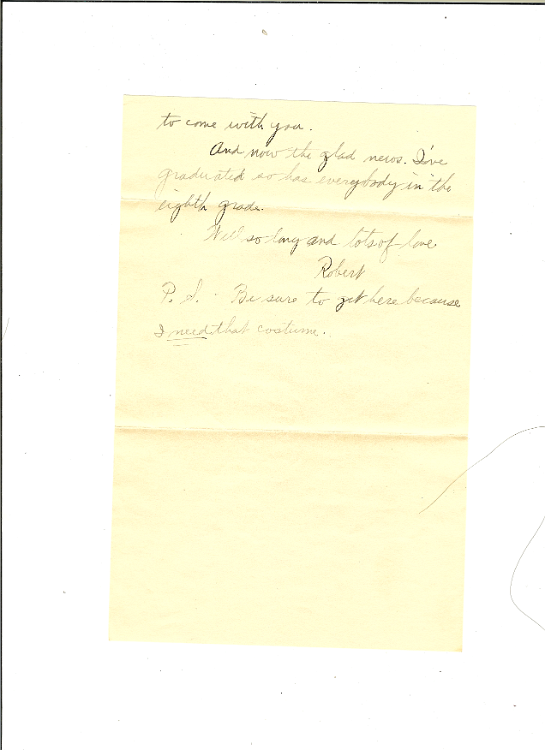 to come with you.
And now the glad news. I've
graduated so has everybody in the
eighth grade.
Well so long and lots of love
Robert
P. S. Be sure to get here because
I need that costume.